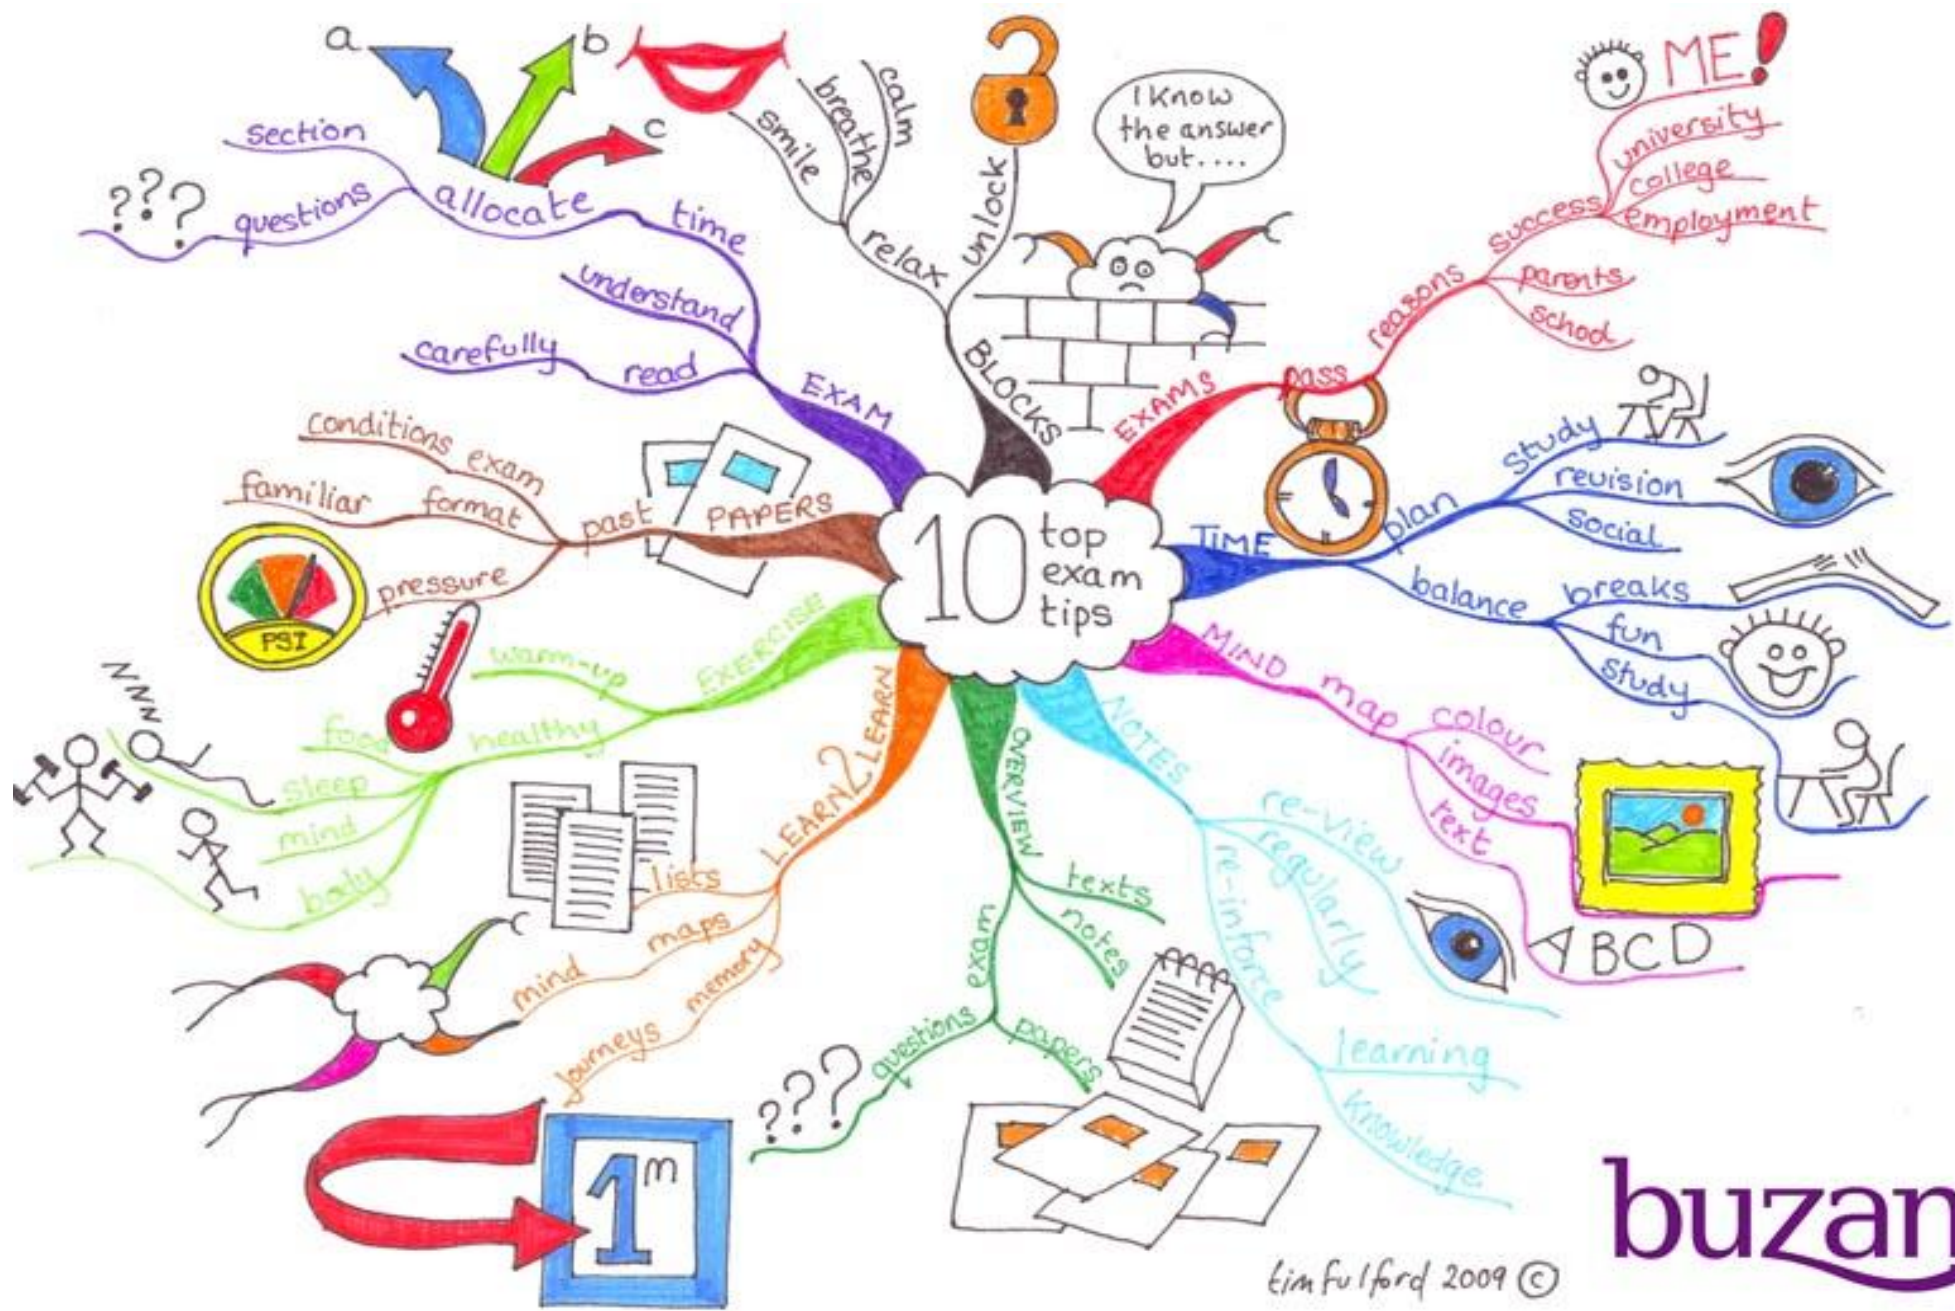 10
top
exam
tips
EXAMS
pass
reasons
success
ME!
university
college
employment
parents
school
TIME
plan
study
revision
social
balance
breaks
fun
study
MIND
map
colour
images
text
ABCD
NOTES
re-view
regularly
re-inforce
learning
knowledge
OVERVIEW
texts
notes
exam
papers
questions
???
LEARN 2 LEARN
lists
maps
mind
memory
journeys
1m
EXERCISE
warm-up
healthy
food
sleep
NNNN
mind
body
PAPERS
past
exam
conditions
format
familiar
pressure
PSI
EXAM
read
carefully
understand
time
allocate
a
b
c
section
questions
???
BLOCKS
relax
smile
breathe
calm
unlock
I know
the answer
but....
timfulford 2009 ©
buzan